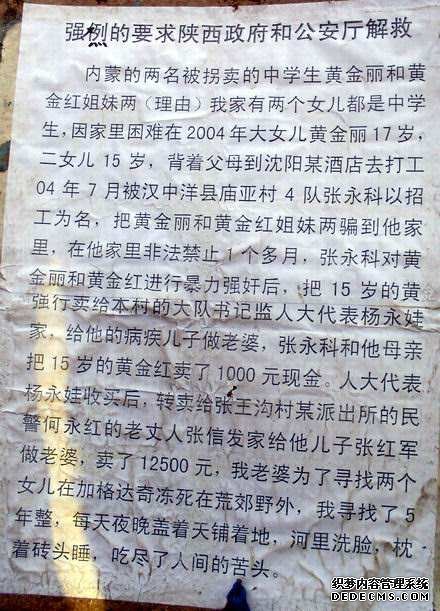 强烈的要求陕西政府和公安厅解救
内蒙的两名被拐卖的中学生黄金丽和黄
金红姐妹两（理由）我家有两个女儿都是中学
生，因家里困难在2004年大女儿黄金丽17岁，
二女儿15岁，背着父母到沈阳某酒店去打工
04年7月被汉中洋县庙亚村4队张永科以招
工为名，把黄金丽和黄金红姐妹两骗到他家
里，在他家里非法禁止1个多月，张永科对黄
金丽和黄金红进行暴力强奸后，把15岁的黄
强行卖给本村的大队书记监人大代表杨永娃
家，给他的病疾儿子做老婆，张永科和他母亲
把15岁的黄金红卖了1000元现金。人大代表
杨永娃收买后，转卖给张王沟村某派出所的民
警何永红的老丈人张信发家给他儿子张红军
做老婆，卖了12500元，我老婆为了寻找两个
女儿在加格达奇冻死在荒郊野外，我寻找了5
年整，每天夜晚盖着天铺着地，河里洗脸，枕
着砖头睡，吃尽了人间的苦头。
织梦内容管理系统
DEDECMS.COM